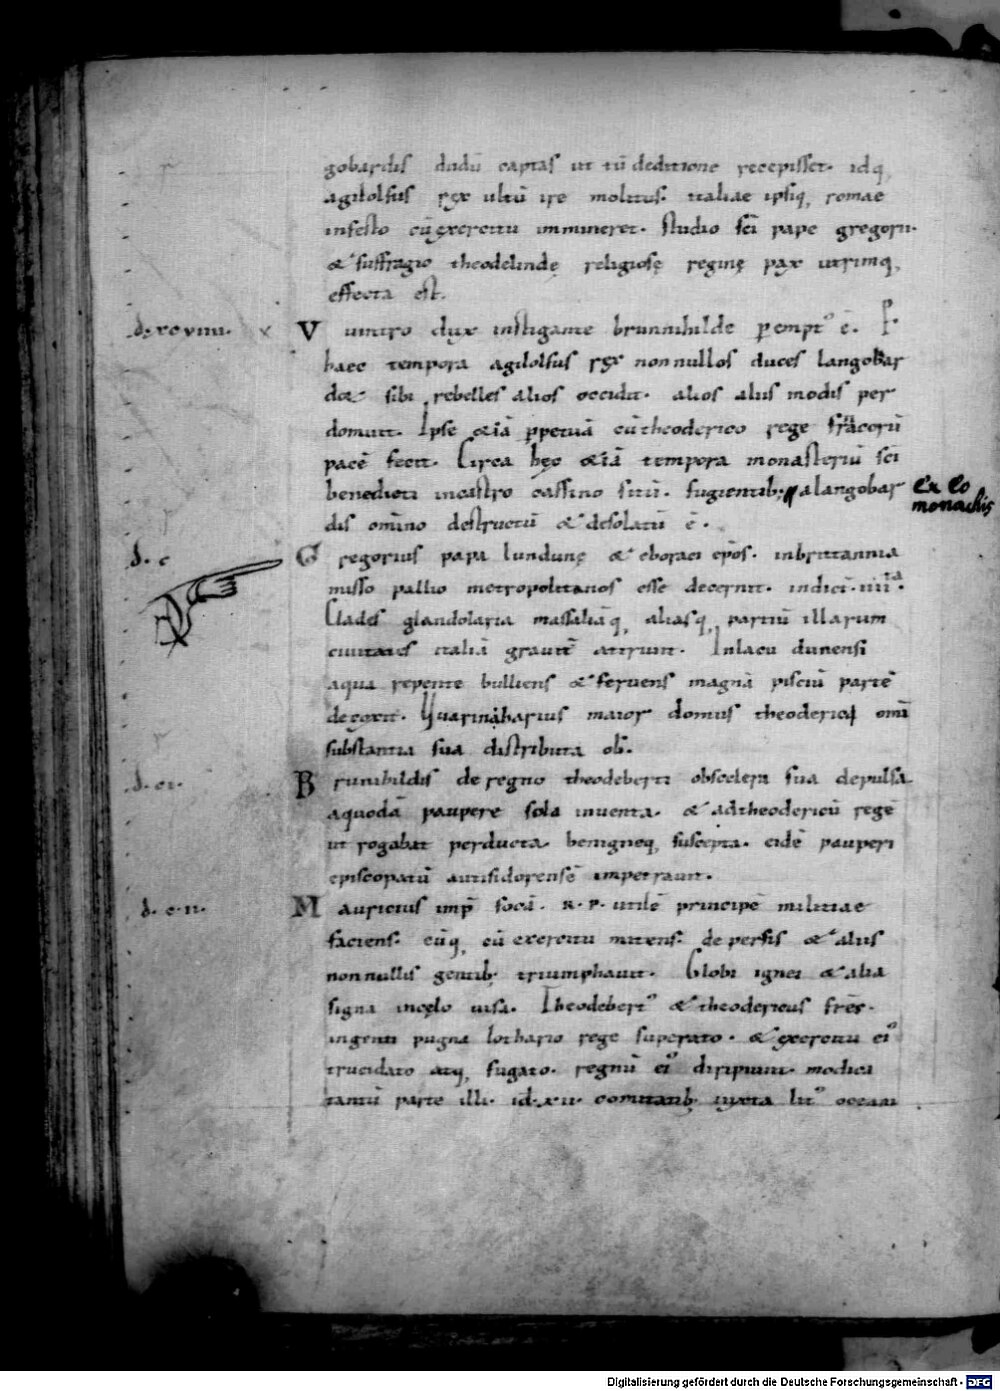 gobardis dudū captas ut tū deditione recepisset. idq,
agilolfus rex ultū ire molitus. italiae ipsiq, romae
infesto cū exercitu immineret. studio scī pape gregorii.
& suffragio theodelindę religiosę reginę pax utrimq,
effecta est.
d. xcviiii. x V uintro dux instigante brunnihilde pempt' ē. P.
haec tempora agilolfus rex non nullos duces langobar
dor sibi rebelles alios occidit. alios aliis modis per
domuit. Ipse &iā ppetuā cū theoderico rege frācorū
pacē fecit. Circa hęc &iā tempora monasteriū scī
benedicti in castro cassino sitū. fugientib; a langobar
ex eo
monachis
dis omīno destructū & desolatū ē.
d. c G regorius papa lundunę & eboraci epōs. in brittannia
misso pallio metropolitanos esse decernit. indicī. iiii.ª
Clades glandolaria massiliāq, aliasq, partiū illarum
ciuitates italiā grauit̄ attriuit. In lacu dunensi
aqua repente bulliens & feruens magnā pisciū partē
decoxit. Quarinaharius maior domus theoderici omī
substantia sua distributa ob̄.
d. ci. B runihildis de regno theodeberti ob scelera sua depulsa
a quodā paupere sola inuenta. & ad theodericū regē
ut rogabat perducta. benigneq, suscepta. eidē pauperi
episcopatū autisidorensē impetrauit.
d. c. ii. M auricius imp̄ socā. R. P. utilē principē militiae
faciens. eūq, cū exercitu mittens. de persis & aliis
non nullis gentib; triumphauit. Globi ignei & alia
signa in cęlo uisa. Theodebert' & theodericus frēs.
ingenti pugna lothario rege superato. & exercitu ei'
trucidato atq, fugato. regnū ei' diripiunt. modica
tantū parte illi. id. xii. comitatib; iuxta lit' oceani
Digitalisierung gefördert durch die Deutsche Forschungsgemeinschaft - DFG